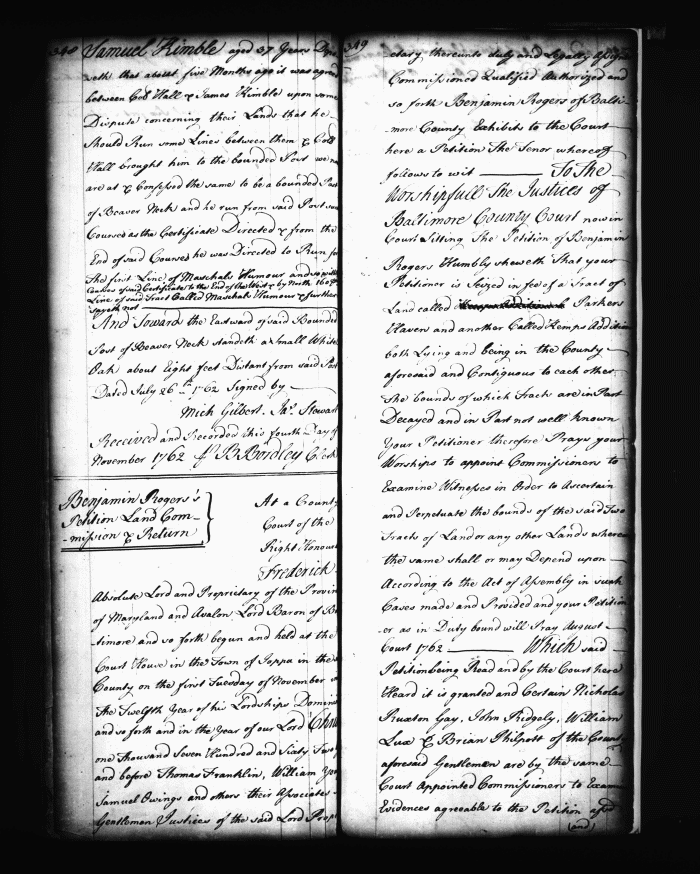 348 Samuel Kimble aged 37 Years Depo
seth that about five Months ago it was agreed
between Cob Hall & James Kimble upon some
Dispute concerning their Lands that he
Should Run some Lines between them & Cob
Hall brought him to the bounded Post we n
are at & Confessed the same to be a bounded Post
of Beaver Neck and he run from said Post su
Courses as the Certificate Directed & from the
End of said Courses he was Directed to Run for
the first Line of Maschals Humour and so with
Courses of said Certificate to the End of the West & by North 160
Line of said Tract Called Maschals Humour & further
sayeth not
And Toward the Eastward of said Bounded
Post of Beaver Neck standeth a Small White
Oak about Eight feet Distant from said Post
Dated July 26th 1762 Signed by
Mich Gilbert. Jas. Stewart
Received and Recorded this fourth Day of
November 1762 B Bordley Clerk
Benjamin Rogers's
Petition Land Com-
-mission & Return
At a County
Court of the
Right Honou
Frederick
Absolute Lord and Proprietary of the Provin
of Maryland and Avalon Lord Baron of B
timore and so forth begun and held at the
Court House in the Town of Joppa in the
County on the first Tuesday of November
the Twelfth Year of his Lordships Domini
and so forth and in the Year of our Lord Chri
one Thousand Seven Hundred and Sixty Two
and before Thomas Franklin, William You
Samuel Owings and others their Associates
Gentlemen Justices of the said Lord Propr
349
etary thereunto duly and Legally Assign
Commissioned Qualified Authorized and
so forth Benjamin Rogers of Balti-
more County Exhibits to the Court
here a Petition The Tenor whereof
follows to wit To The
Worshipfull The Justices of
Baltimore County Court now in
Court Sitting The Petition of Benjamin
Rogers Humbly sheweth That your
Petitioner is Seized in fee of a Tract of
Land called Parkers
Haven and another Called Kemps Addition
both Lying and being in the County
aforesaid and Contiguous to each other
the bounds of which Tracts are in Part
Decayed and in Part not well known
Your Petitioner therefore Prays your
Worships to appoint Commissioners to
Examine Witnesses in Order to Ascertain
and Perpetuate the bounds of the said Two
Tracts of Land or any other Lands whereon
the same shall or may Depend upon
According to the Act of Assembly in such
Cases made and Provided and your Petition
er as in Duty bound will Pray August
Court 1762 Which said
Petition being Read and by the Court here
Heard it is granted and Certain Nicholas
Ruxton Gay, John Ridgely, William
Lux & Brian Philpott of the County
aforesaid Gentlemen are by the same
Court Appointed Commissioners to Exam
Evidences agreeable to the Petition afsd
(and)